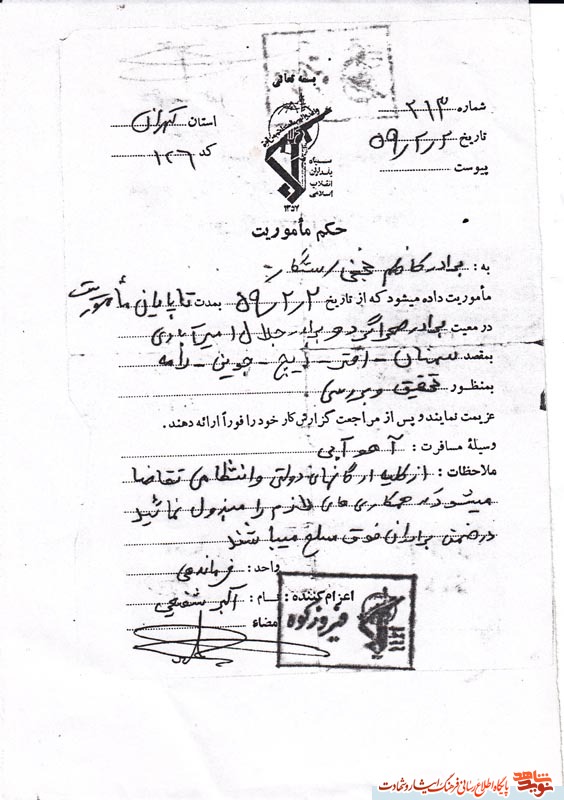 بسمه تعالی
شماره ۲۱۳
تاریخ ۵۹/۲/۲
پیوست
استان تهران
کد ۱۲۶
سپاه
پاسداران
انقلاب
اسلامی
۱۳۵۷
حکم مأموریت
به : برادر کاظم نجفی رستگار
مأموریت داده میشود که از تاریخ ۵۹/۲/۲ بمدت تا پایان مأموریت
در معیت برادر صحراگرد و برادر جلال امیرآبادی
بمقصد سمنان - افتر - ایج - جوین - رامه
بمنظور تحقیق و بررسی
عزیمت نمایند و پس از مراجعت گزارش کار خود را فوراً ارائه دهند.
وسیلهٔ مسافرت : آهو آبی
ملاحظات : از کلیه ارگانهای دولتی و انتظامی تقاضا
میشود که همکاری های لازم را مبذول نمائید
در ضمن برادران فوق مسلح میباشند
واحد : فرماندهی
اعزام کننده : نام : اکبر شفیعی
مضاء
فیروزکوه
نوید شاهد
پایگاه اطلاع رسانی فرهنگ ایثار و شهادت